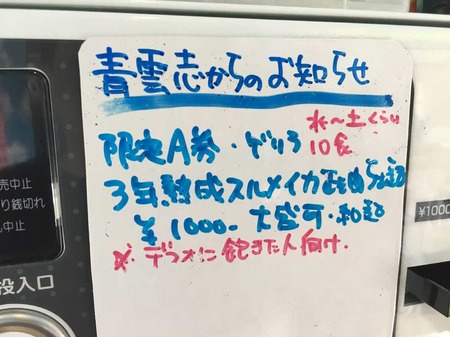 青雲志からのお知らせ
限定A券・ゲリラ
水〜土くらい
10食
3年熟成スルメイカ
¥1000- 大盛可・和
※デフォに飽きた人向け.
売中止
り銭切れ
中止
投入口
¥1000